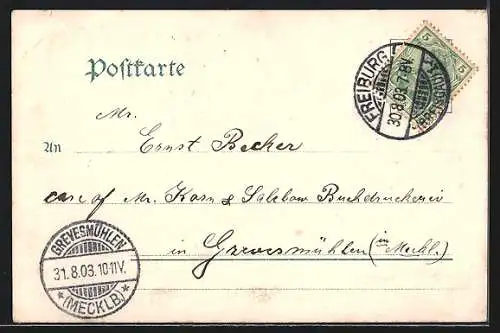 Postkarte
5
5
FREIBURG
30.8.03.7-8V.
(BREISGAU)
Mr.
An Ernst Becker
care of Mr. Karn & Salzbow Buchdruckerei
in Grevesmühlen (in Meckl.)
GREVESMÜHLEN
31.8.03.10-11V.
*(MECKLB.)*